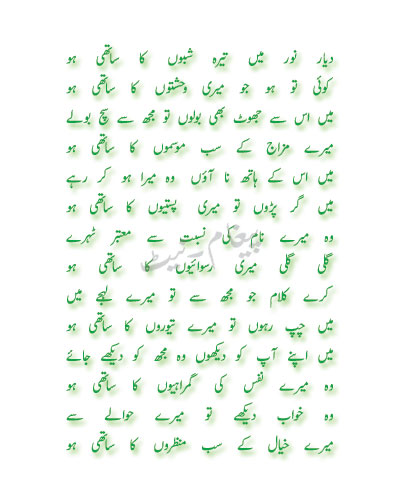 دیار نور میں تیرہ شبوں کا ساتھی ہو
کوئی تو ہو جو میری وحشتوں کا ساتھی ہو
میں اس سے جھوٹ بھی بولوں تو مجھ سے سچ بولے
میرے مزاج کے سب موسموں کا ساتھی ہو
میں اس کے ہاتھ نا آؤں وہ میرا ہو کر رہے
میں گر پڑوں تو میری پستیوں کا ساتھی ہو
وہ میرے نام کی نسبت سے معتبر ٹہرے
گلی گلی میری رسوائیوں کا ساتھی ہو
کرے کلام جو مجھ سے تو میرے لہجے میں
میں چپ رہوں تو میرے تیوروں کا ساتھی ہو
میں اپنے آپ کو دیکھوں وہ مجھ کو دیکھے جائے
وہ میرے نفس کی گمراہیوں کا ساتھی ہو
وہ خواب دیکھے تو میرے حوالے سے
میرے خیال کے سب منظروں کا ساتھی ہو